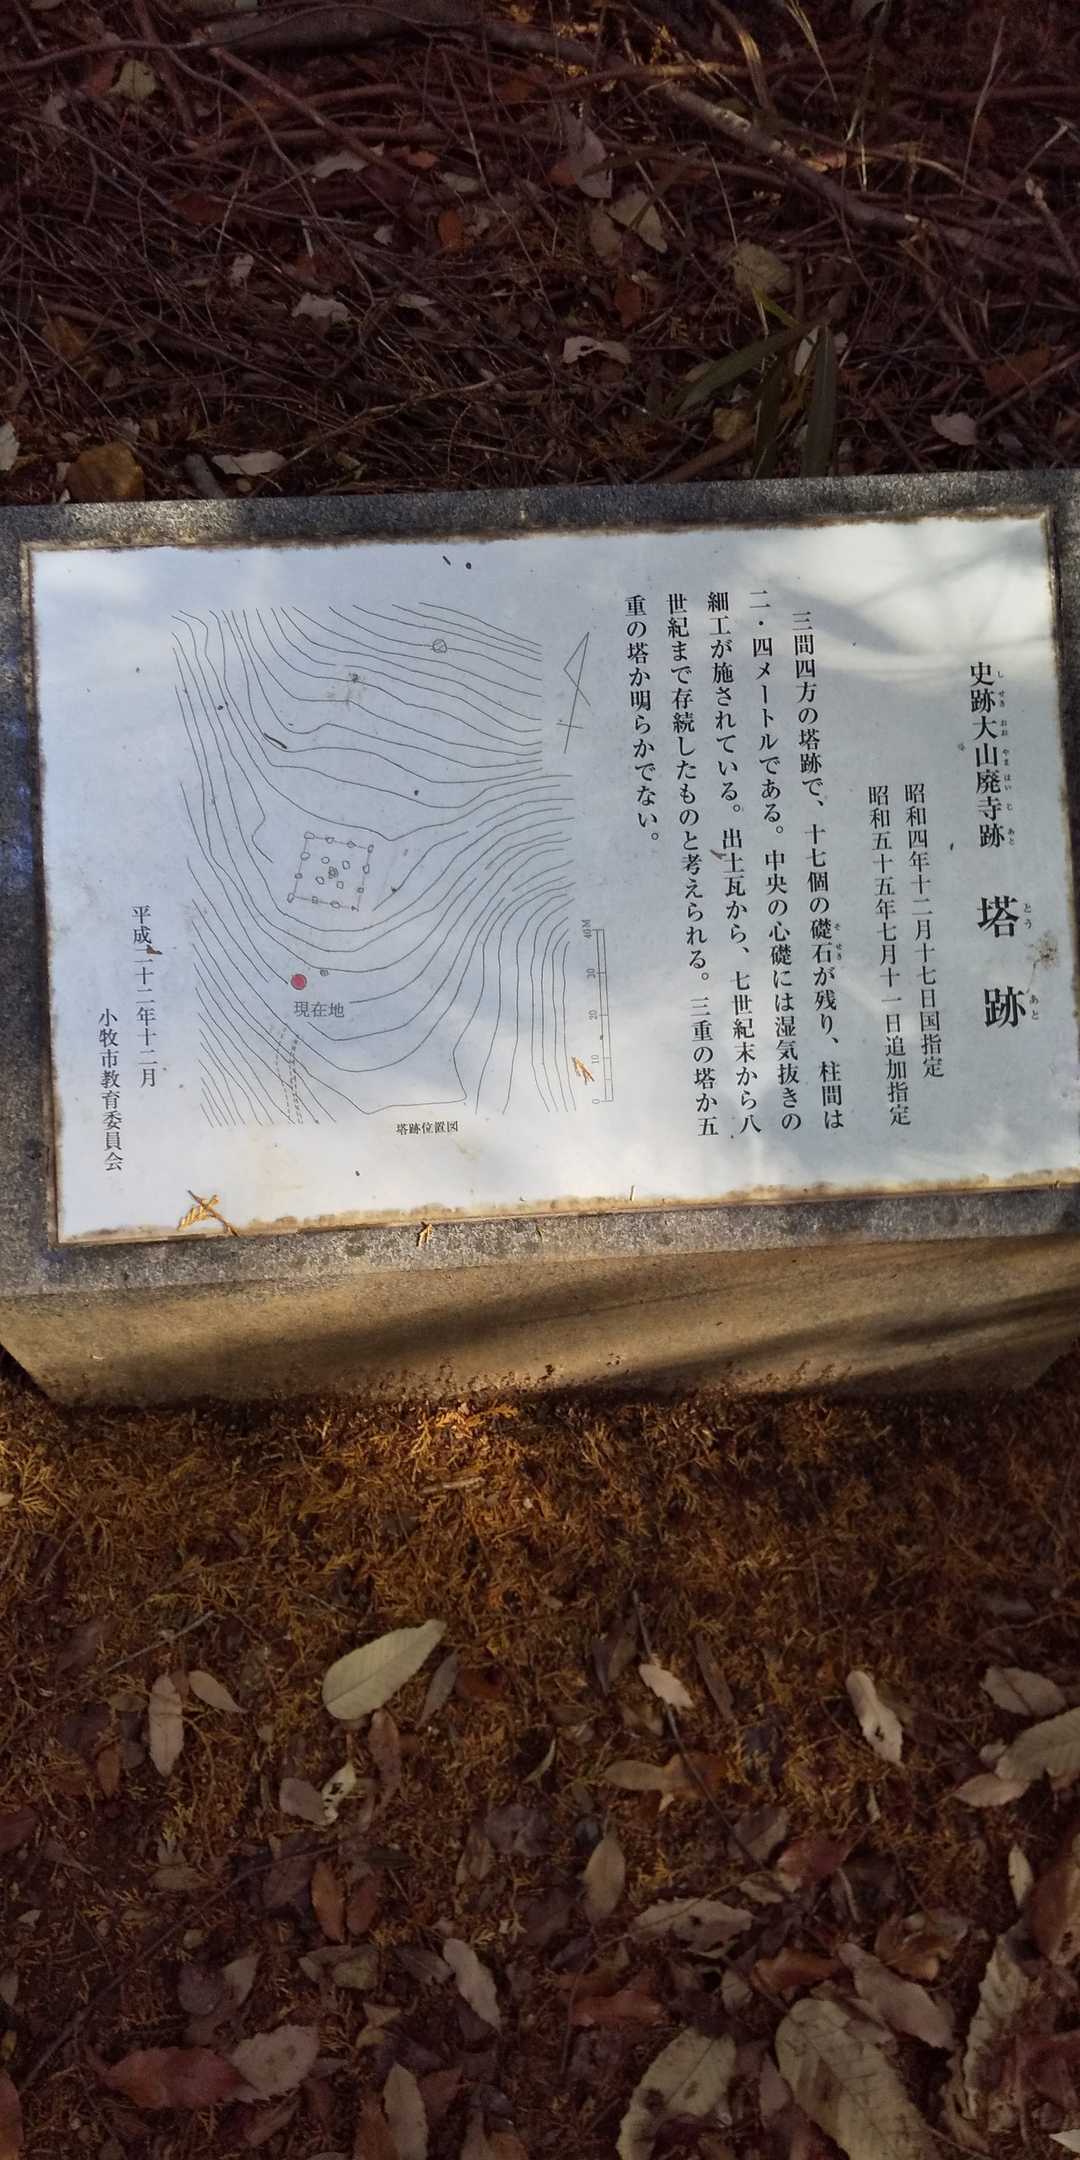 史跡大山廃寺跡 塔跡
しせきおおやまはいじあと とうあと
昭和四年十二月十七日国指定
昭和五十五年七月十一日追加指定
三間四方の塔跡で、十七個の礎石が残り、柱間は
そせき
二・四メートルである。中央の心礎には湿気抜きの
細工が施されている。出土瓦から、七世紀末から八
世紀まで存続したものと考えられる。三重の塔か五
重の塔か明らかでない。
40M
30
20
10
0
現在地
塔跡位置図
平成二十二年十二月
小牧市教育委員会